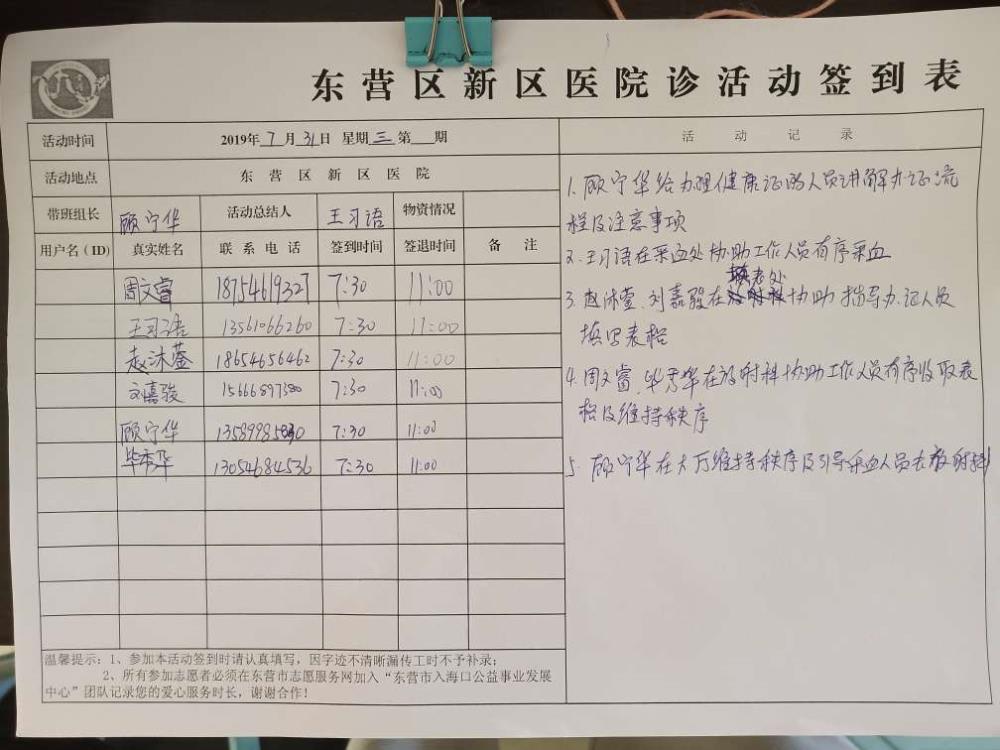 东营区新区医院诊活动签到表
活动时间 2019年7月31日 星期三 第 期
活动地点 东营区新区医院
带班组长 顾宁华 活动总结人 王习语 物资情况
用户名(ID) 真实姓名 联系电话 签到时间 签退时间 备注
周文睿 18754619327 7:30 11:00
王习语 13561066260 7:30 11:00
赵沐萱 18654656462 7:30 11:00
刘嘉骏 15666897380 7:30 11:00
顾宁华 7:30 11:00
毕秀华 13054684536 7:30 11:00
温馨提示:1、参加本活动签到时请认真填写,因字迹不清晰漏传工时不予补录;
2、所有参加志愿者必须在东营市志愿服务网加入“东营市入海口公益事业发展
中心”团队记录您的爱心服务时长,谢谢合作!
活动记录
1.顾宁华给办理健康证的人员讲解办证流
程及注意事项
2.王习语在采血处协助工作人员有序采血
3.赵沐萱、刘嘉骏在填表处协助指导办证人员
填写表格
4.周文睿、毕秀华在放射科协助工作人员有序收取表
格及维持秩序
5.顾宁华在大厅维持秩序及引导采血人员去放射科